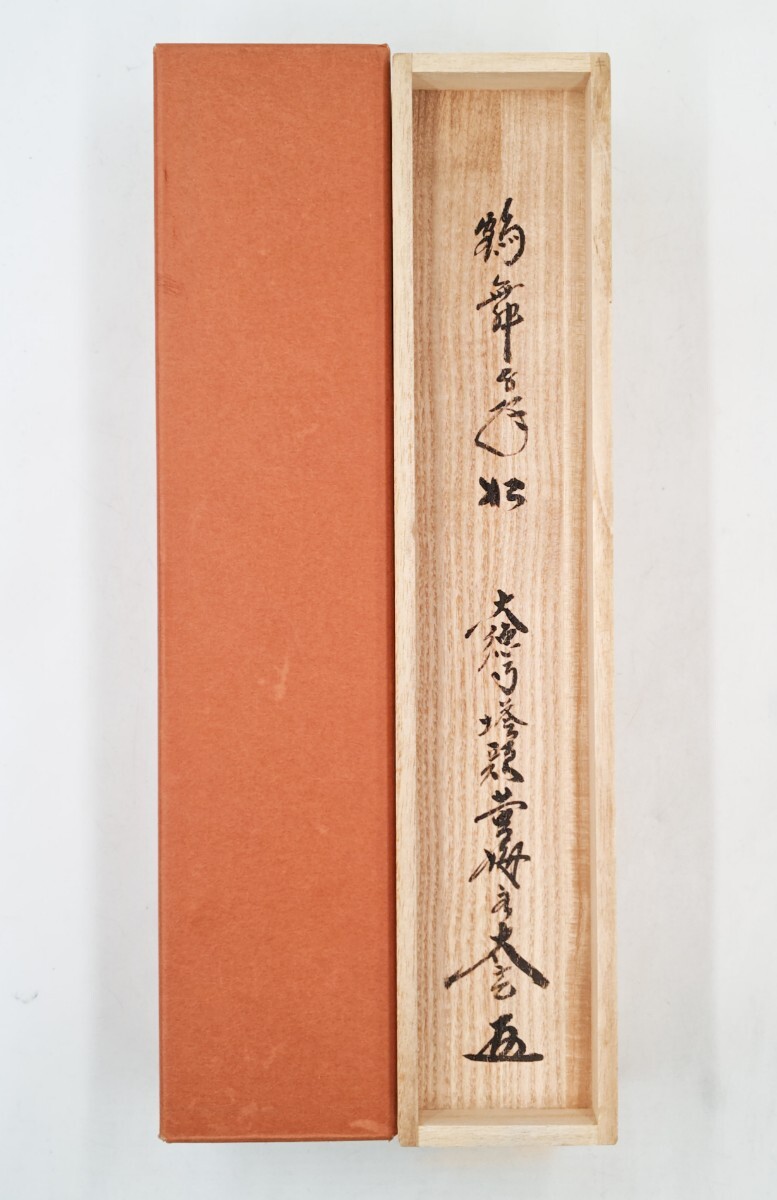 鶴舞千年松
大徳寺塔頭黄梅院太玄